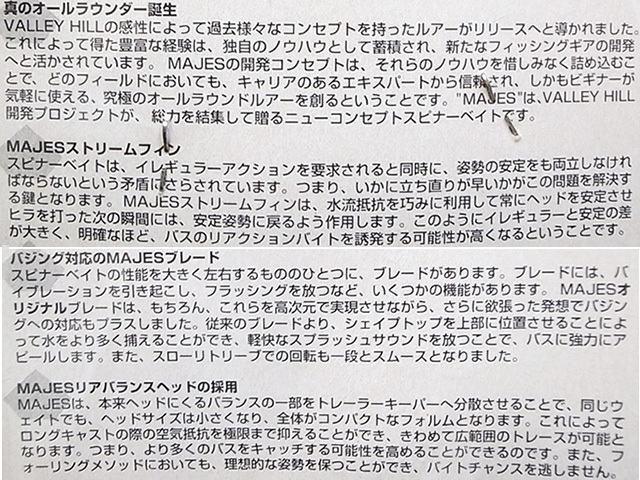 真のオールラウンダー誕生
VALLEY HILLの感性によって過去様々なコンセプトを持ったルアーがリリースへと導かれました。
これによって得た豊富な経験は、独自のノウハウとして蓄積され、新たなフィッシングギアの開発
へと活かされています。 MAJESの開発コンセプトは、それらのノウハウを惜しみなく詰め込むこ
とで、どのフィールドにおいても、キャリアのあるエキスパートから信頼され、しかもビギナーが
気軽に使える、究極のオールラウンドルアーを創るということです。"MAJES"は、VALLEY HILL
開発プロジェクトが、総力を結集して贈るニューコンセプトスピナーベイトです。
MAJESストリームフィン
スピナーベイトは、イレギュラーアクションを要求されると同時に、姿勢の安定をも両立しなけれ
ばならないという矛盾にさらされています。つまり、いかに立ち直りが早いかがこの問題を解決す
る鍵となります。 MAJESストリームフィンは、水流抵抗を巧みに利用して常にヘッドを安定させ
ヒラを打った次の瞬間には、安定姿勢に戻るよう作用します。このようにイレギュラーと安定の差
が大きく、明確なほど、バスのリアクションバイトを誘発する可能性が高くなるということです。
バジング対応のMAJESブレード
スピナーベイトの性能を大きく左右するもののひとつに、ブレードがあります。ブレードには、バ
イブレーションを引き起こし、フラッシングを放つなど、いくつかの機能があります。 MAJESオ
リジナルブレードは、もちろん、これらを高次元で実現させながら、さらに欲張った発想でバジン
グへの対応もプラスしました。従来のブレードより、シェイプトップを上部に位置させることによ
って水をより多く捕えることができ、軽快なスプラッシュサウンドを放つことで、バスに強力にア
ピールします。また、スローリトリーブでの回転も一段とスムースとなりました。
MAJESリアバランスヘッドの採用
MAJESは、本来ヘッドにくるバランスの一部をトレーラーキーパーへ分散させることで、同じウ
ェイトでも、ヘッドサイズは小さくなり、全体がコンパクトなフォルムとなります。これによって
ロングキャストの際の空気抵抗を極限まで抑えることができ、きわめて広範囲のトレースが可能と
なります。つまり、より多くのバスをキャッチする可能性を高めることができるのです。また、フ
ォーリングメソッドにおいても、理想的な姿勢を保つことができ、バイトチャンスを逃しません。